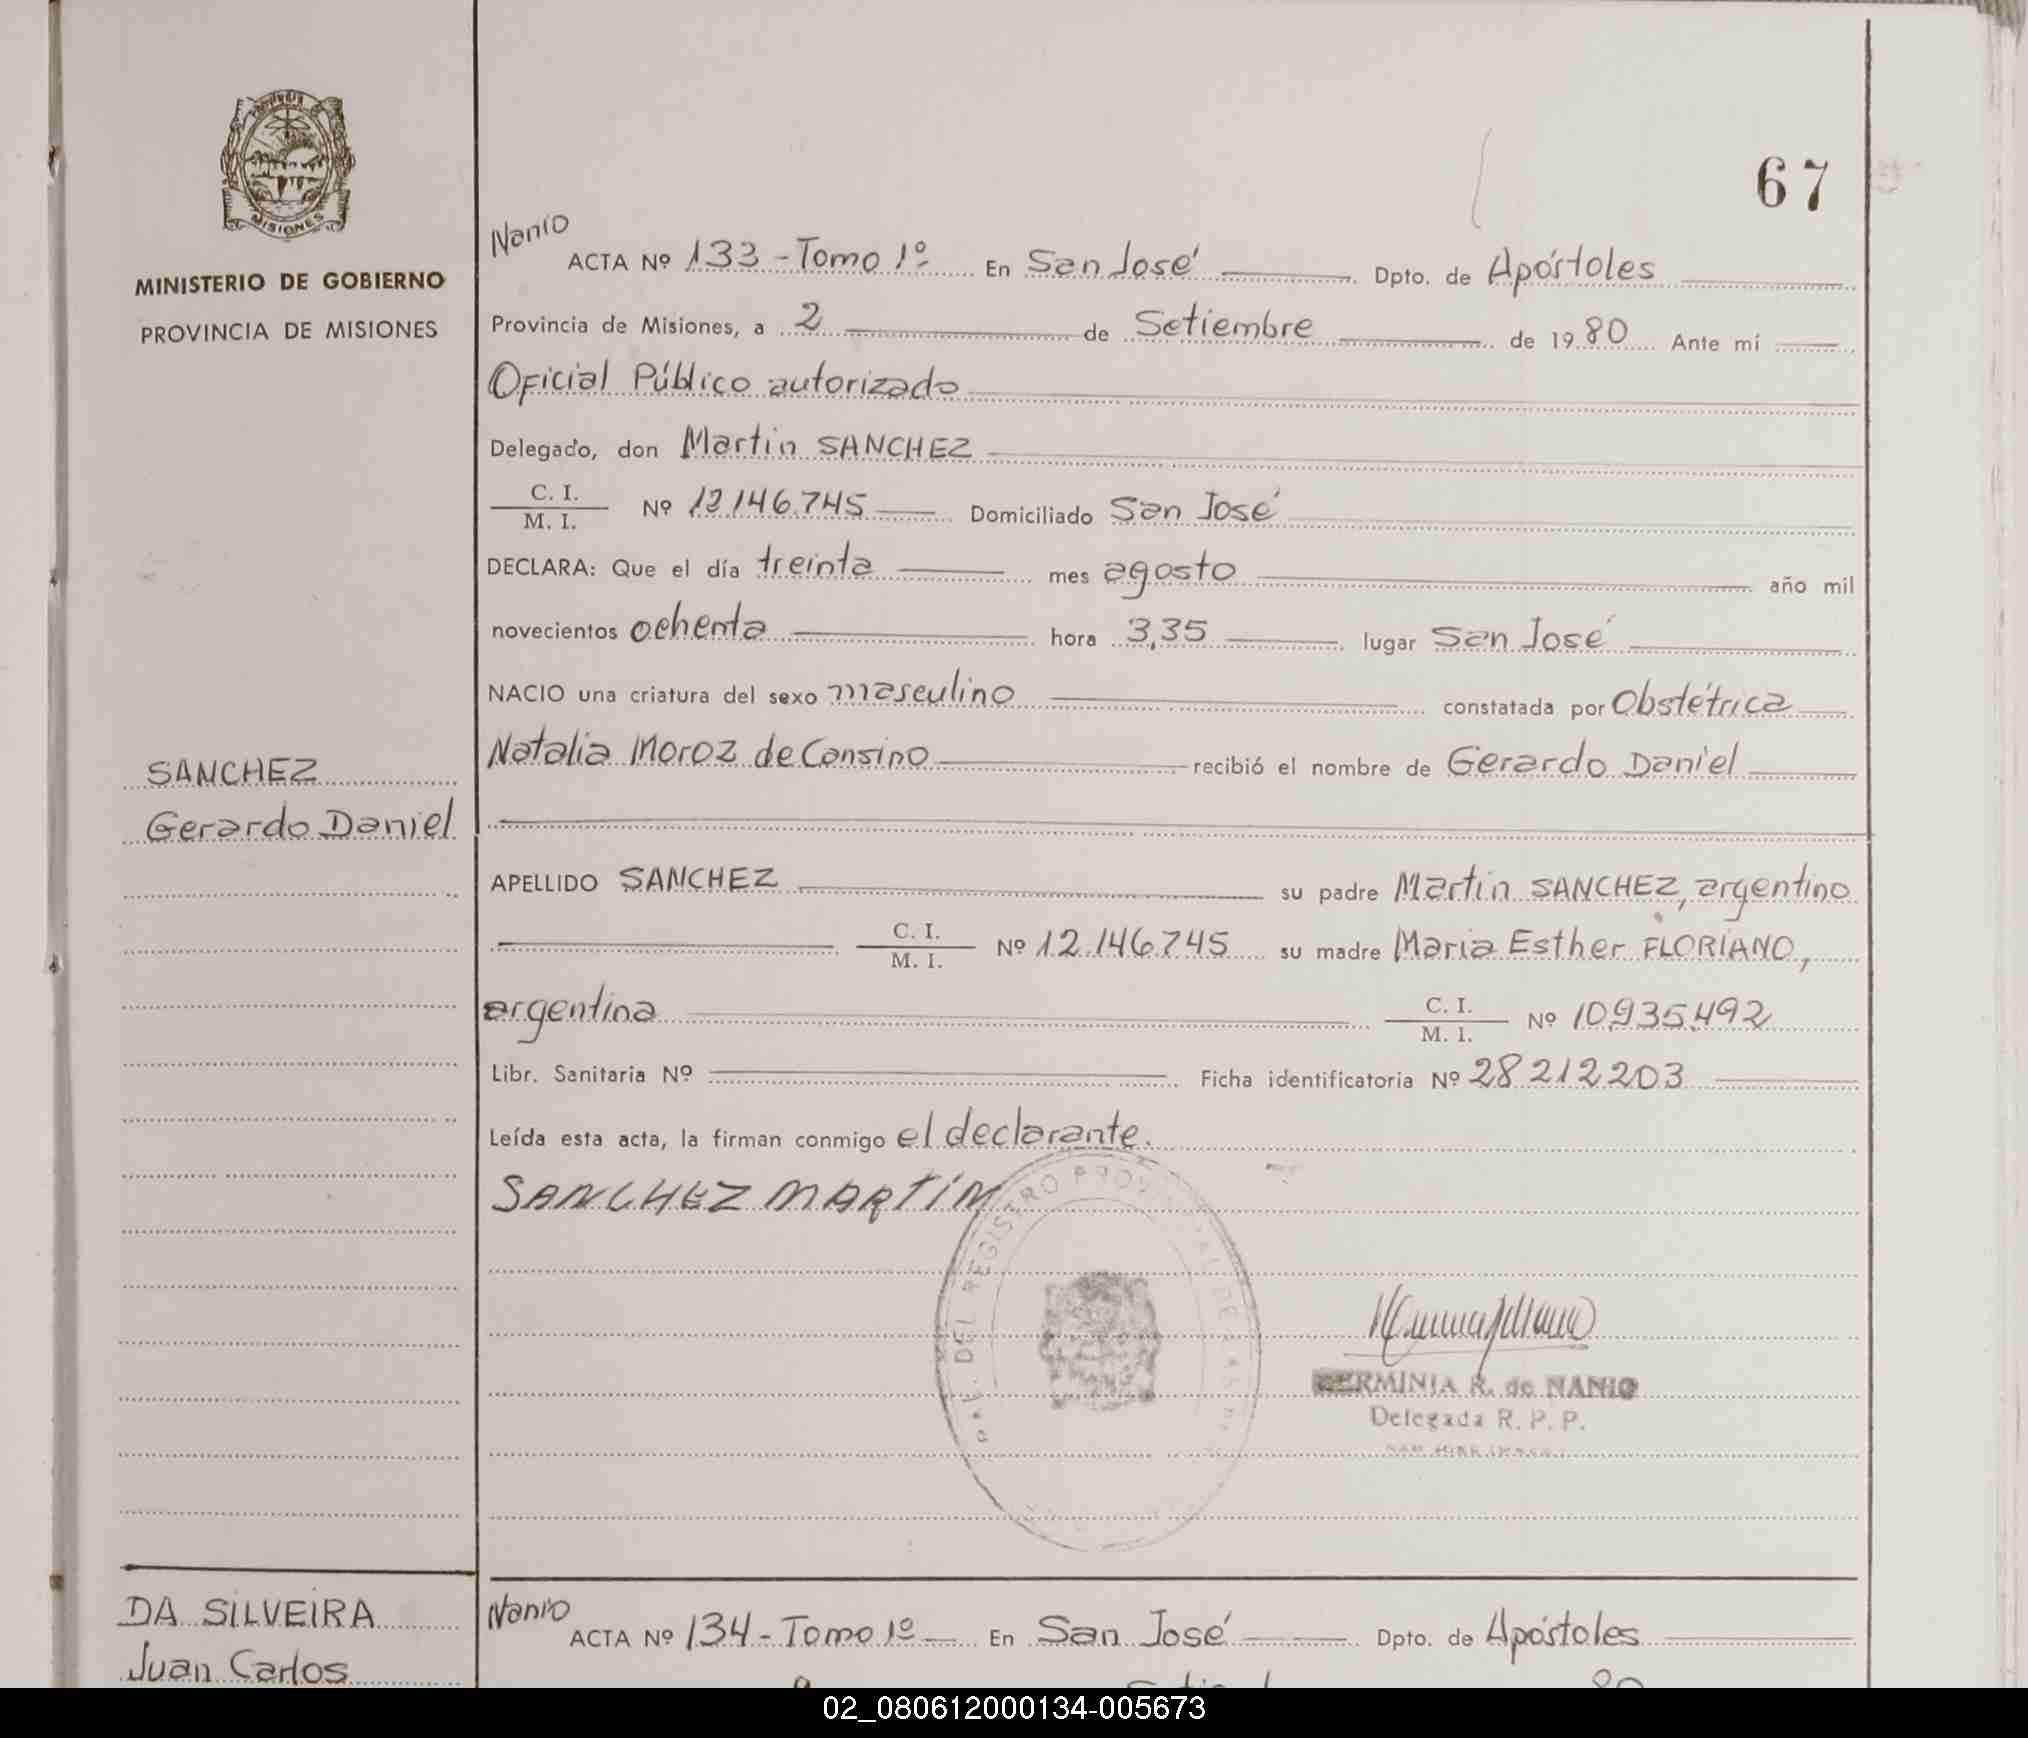 67
PROVINCIA DE
MISIONES
MINISTERIO DE GOBIERNO
PROVINCIA DE MISIONES
Nanio
ACTA Nº 133 - Tomo 1º En San José Dpto. de Apóstoles
Provincia de Misiones, a 2 de Setiembre de 1980 Ante mí
Oficial Público autorizado
Delegado, don Martin SANCHEZ
C. I.
M. I.
Nº 12.146.745 Domiciliado San José
DECLARA: Que el día treinta mes agosto año mil
novecientos ochenta hora 3,35 lugar San José
NACIO una criatura del sexo masculino constatada por Obstétrica
Natalia Moroz de Cansino recibió el nombre de Gerardo Daniel
SANCHEZ
Gerardo Daniel
APELLIDO SANCHEZ su padre Martin SANCHEZ, argentino
C. I.
M. I.
Nº 12.146.745 su madre Maria Esther FLORIANO,
argentina
C. I.
M. I.
Nº 10.935.492
Libr. Sanitaria Nº Ficha identificatoria Nº 28.212.203
Leída esta acta, la firman conmigo el declarante.
SANCHEZ MARTIN
DEL REGISTRO PROVINCIAL DE LAS
HERMINIA R. de NANIO
Delegada R. P. P.
DA SILVEIRA
Juan Carlos
Nanio
ACTA Nº 134 - Tomo 1º En San José Dpto. de Apóstoles
02_080612000134-005673